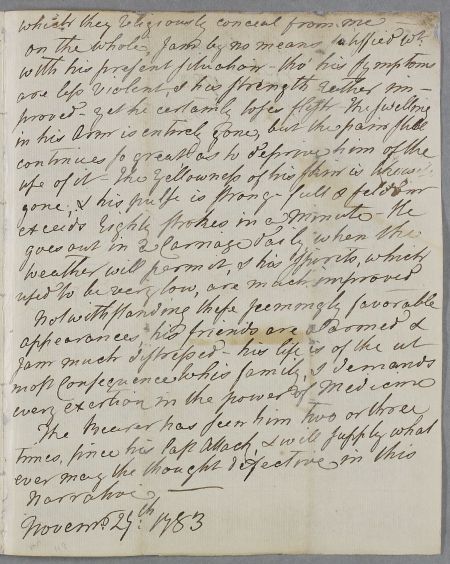 which they religiously conceal from me —
on the whole, I am by no means satisfied wt.
with his present situation - tho his symptoms
are less violent, & his strength rether im-
proved - yet he certainly loses flesh - The swelling
in his arm is entirely gone, but the pain still
continues so great as to deprive him of the
use of it - The Yellowness of his skin is likewise
gone, & his pulse is strong - full & seldom
exceeds Eighty strokes in a Minute - He
goes out in a Carriage daily when the
weather will permit, & his spirits, which
used to be very low, are much improved
Notwithstanding these seemingly favorable
appearances, his friends are alarmed &
I am much distressed - his life is of the ut
most Consequence to his family, & demands
every exertion in the power of Medicine
The Bearer has seen him two or three
times, since his last attack, & will supply what
ever may be thought defective in this
Narrative —
Novemr. 27th. 1783